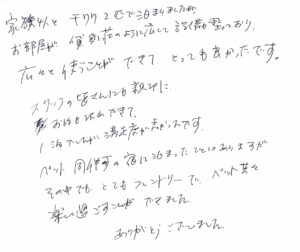 家族4人と チワワ2匹で泊まりましたが、
お部屋が 貸別荘のように広くて 設備も整っており、
広々と使うことが できて とっても良かったです。
スタッフの皆さんにも親切に
お話も 出来て、
1泊でしたが満足度が高かったです。
ペット同伴可の宿に泊まったことはありますが
その中でも とてもフレンドリーで、ペット共々
楽しい過ごすことが できました。
ありがとうございました。